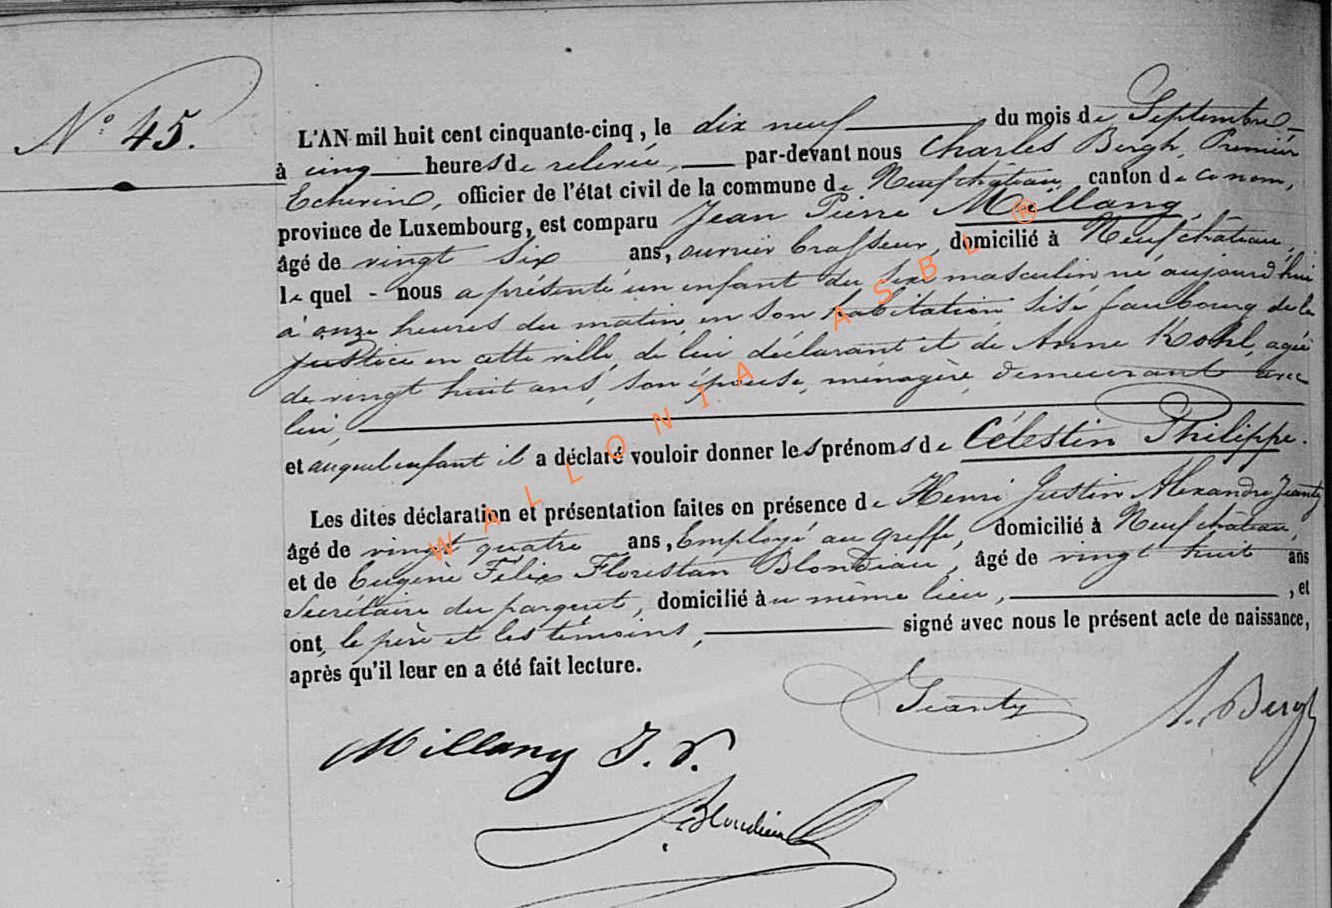 N° 45.
L'AN mil huit cent cinquante-cinq, le dix neuf du mois de Septembre
à cinq heures de relevée, par-devant nous Charles Bergh, Premier
Echevin, officier de l'état civil de la commune de Neufchâteau, canton de ce nom,
province de Luxembourg, est comparu Jean Pierre Millang,
âgé de vingt six ans, ouvrier brasseur, domicilié à Neufchâteau,
lequel - nous a présenté un enfant du sexe masculin né aujourd'hui
à onze heures du matin, en son habitation sise faubourg de la
justice en cette ville, de lui déclarant et de Anne Kohl, agée
de vingt huit ans, son épouse, ménagère, demeurant avec
lui,
et auquel enfant il a déclaré vouloir donner les prénoms de Célestin Philippe.
Les dites déclaration et présentation faites en présence de Henri Justin Alexandre Jeanty
âgé de vingt quatre ans, Employé au greffe, domicilié à Neufchâteau,
et de Eugène Félix Florestan Blondeau, âgé de vingt huit ans
Secrétaire du parquet, domicilié au même lieu, , et
ont, le père et les témoins, signé avec nous le présent acte de naissance,
après qu'il leur en a été fait lecture.
Jeanty
Bergh
Millang J. P.
Blondeau
WALLONIA ASBL ®